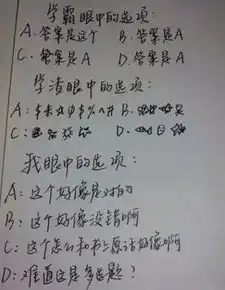 学霸眼中的选项：
A. 答案是这个 B. 答案是A
C. 答案是A D. 答案是A
学渣眼中的选项：
A：$ % ^ #  B.
C： D.
我眼中的选项：
A：这个好像是对的
B：这个好像没错啊
C：这个怎么和书上原话好像啊
D：难道这是多选题？